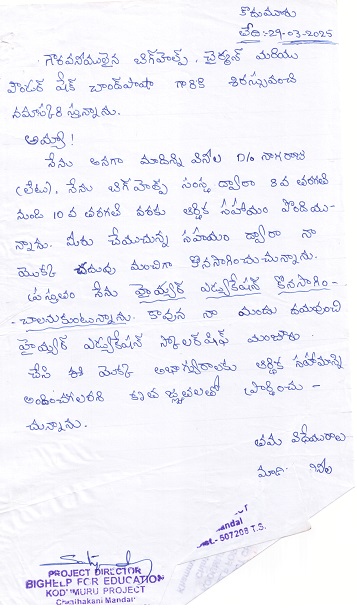 కొదుమూరు
తేది:-29-03-2025
గౌరవనీయులైన బిగ్‌హెల్ప్, చైర్మన్ మరియు
ఫౌండర్ షేక్ చాంద్‌పాషా గారికి శిరస్సువంచి
నమస్కరిస్తున్నాను.
అయ్యా!
నేను అనగా మాదిన్ని వినీల D/o నాగరాజు
(లేటు), నేను బిగ్‌హెల్ప్ సంస్థ ద్వారా 8వ తరగతి
నుండి 10వ తరగతి వరకు ఆర్థిక సహాయం పొందియు-
న్నాను. మీరు చేయుచున్న సహాయం ద్వారా నా
యొక్క చదువు మంచిగా కొనసాగించుచున్నాను.
ప్రస్తుతం నేను హైయ్యర్ ఎడ్యుకేషన్ కొనసాగిం-
-చాలనుకుంటున్నాను. కావున నా యందు దయవుంచి
హైయ్యర్ ఎడ్యుకేషన్ స్కాలర్‌షిఫ్ మంజూరు
చేసి ఈ యొక్క అభాగ్యురాలకు ఆర్థిక సహాయాన్ని
అందించగలరని కృతజ్ఞతలతో ప్రార్థించు-
చున్నాను.
తమ విధేయురాలు
మాది
andal
507208 T.S.
PROJECT DIRECTOR
BIGHELP FOR EDUCATION
KODUMURU PROJECT
Chinthakani Mandal